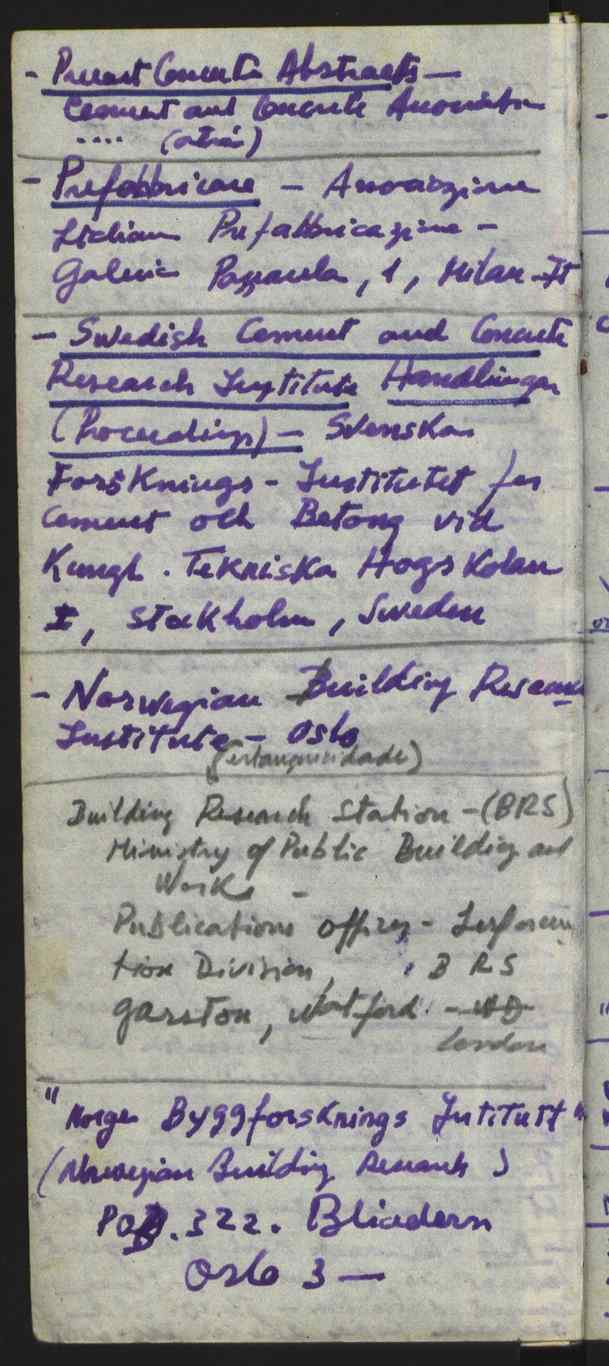 - Precast Concrete Abstracts -
Cement and Concrete Association
.... (atrás)
- Prefabbricare - Associazione
Italiana Prefabbricazione -
Galeria Passarela, 1, Milan-It
- Swedish Cement and Concrete
Research Institute Handlingar
(Proceedings) - Svenska
Forsknings-Institutet for
Cement och Betong vid
Kungl. Tekniska Hogskolan
I, Stockholm, Sweden
- Norwegian Building Research
Institute - Oslo
(estanqueidade)
Building Research Station - (BRS)
Ministry of Public Building and
Works -
Publications officer - Informa
tion Division, BRS
Garston, Watford -
London
"Norges Byggforsknings Institutt"
(Norwegian Building Research)
POB. 322. Blindern
Oslo 3 -